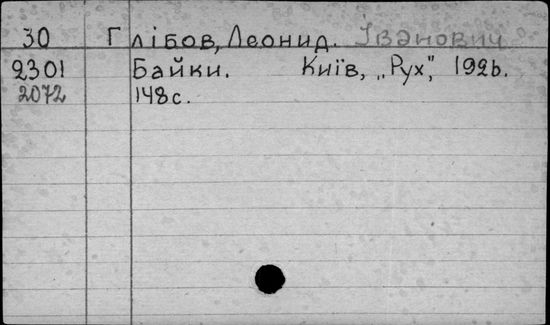 30 Глібов, Леонид. Іванович
2301 Байки. Київ, „Рух", 1926.
2072 148с.